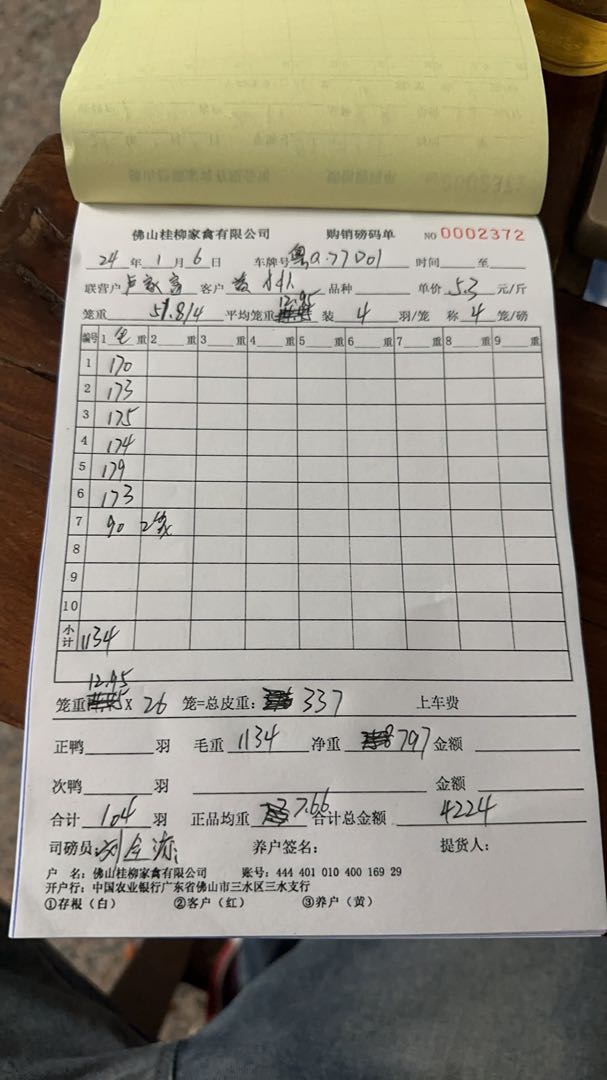 佛山桂柳家禽有限公司 购销磅码单 NO 0002372
24 年 1 月 6 日 车牌号 粤Q.77D01 时间 至
联营户 卢家富 客户 品种 单价 5.3 元/斤
笼重 51.8/4 平均笼重 12.95 装 4 羽/笼 称 4 笼/磅
编号 1 重 2 重 3 重 4 重 5 重 6 重 7 重 8 重 9 重
1 170
2 173
3 175
4 174
5 179
6 173
7 90 2笼
8
9
10
小计 1134
笼重 12.95 X 26 笼=总皮重: 337 上车费
正鸭 羽 毛重 1134 净重 797 金额
次鸭 羽 金额
合计 104 羽 正品均重 7.66 合计总金额 4224
司磅员: 刘 养户签名: 提货人:
户 名: 佛山桂柳家禽有限公司 账号: 444 401 010 400 169 29
开户行: 中国农业银行广东省佛山市三水区三水支行
①存根（白） ②客户（红） ③养户（黄）